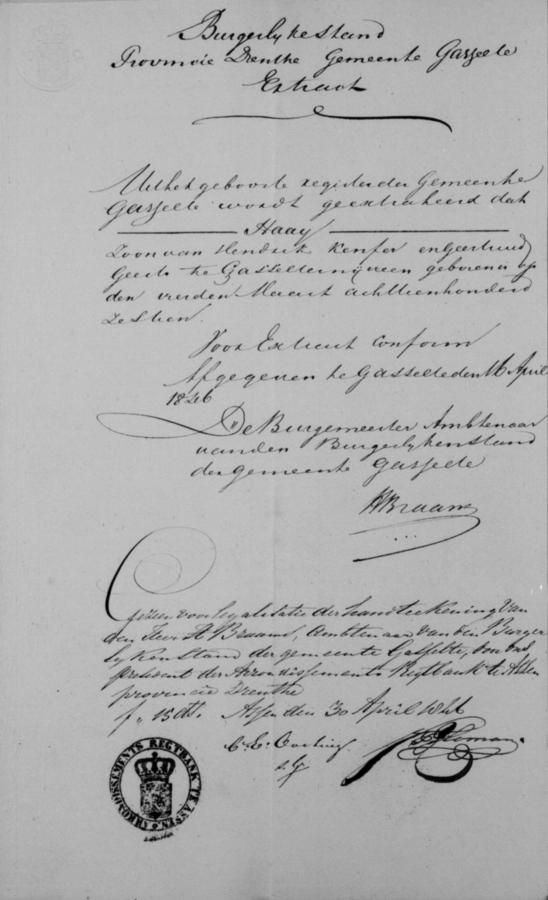 Burgerlykestand
Provincie Drenthe Gemeente Gasselte
Extract
Uit het geboorte register der Gemeente
Gasselte wordt geextraheerd dat
Haay
Zoon van Hendrik en Geertruid
Geerts te Gasselternyveen geboren is op
den vierden Maart achttienhonderd
zestien.
Voor Extract conform
Afgegeven te Gasselte den 16 April
1846
De Burgemeester Ambtenaar
van den Burgerlyken Stand
der gemeente Gasselte
HBraams
Gezien voor legalisatie der handteekening van
den Heer H Braams, Ambtenaar van den Burger
lyken Stand der gemeente Gasselte, door ons
president der Arrondissements Regtbank te Assen
provincie Drenthe
f „ 15 cts. Assen den 30 April 1846
ARRONDISSEMENTS REGTBANK TE ASSEN